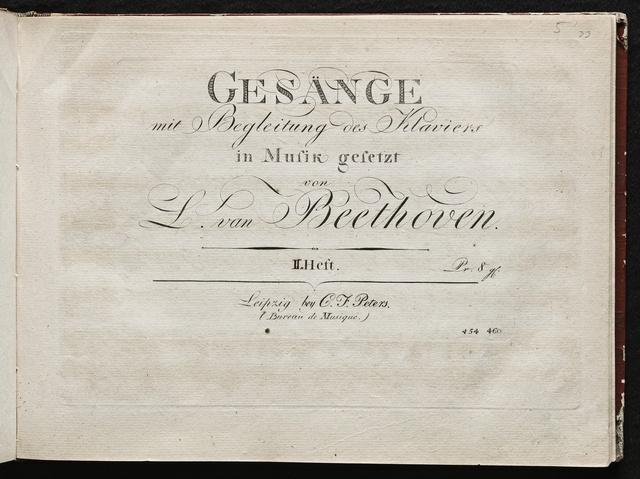 GESÄNGE
mit Begleitung des Klaviers
in Muſik geſetzt
von
L. van Beethoven.
II. Heft. Pr: 8 gr.
Leipzig bey C. F. Peters.
(Bureau de Musique.)
454 460